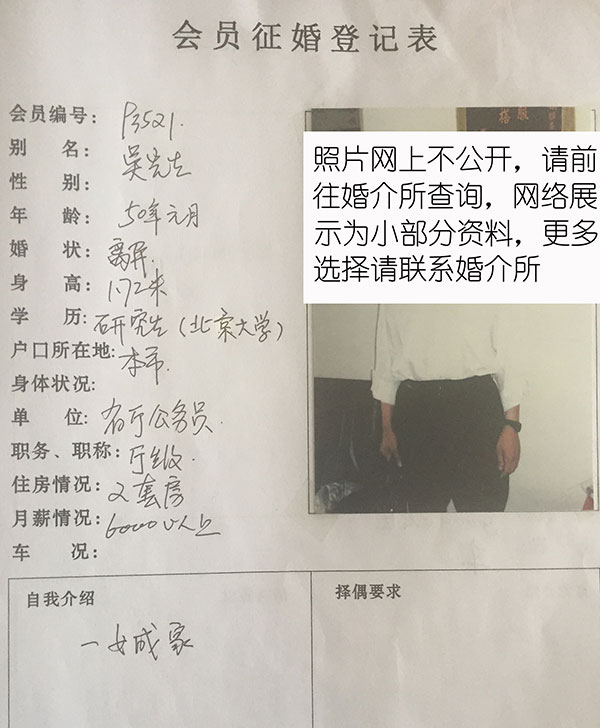 会员征婚登记表
会员编号: P3521.
别 名: 吴先生
性 别:
年 龄: 50年元月
婚 状: 离异.
身 高: 1172米
学 历: 研究生(北京大学)
户口所在地: 本市.
身体状况:
单 位: 省厅公务员.
职务、职称: 厅级.
住房情况: 2套房
月薪情况: 6000以上
车 况:
自我介绍
一女成家
择偶要求
照片网上不公开，请前
往婚介所查询，网络展
示为小部分资料，更多
选择请联系婚介所